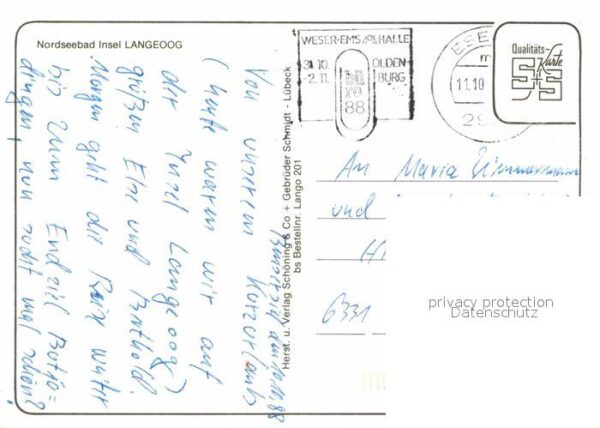 Nordseebad Insel LANGEOOG
Von unserem Kurzurlaub
(heute waren wir auf
der Insel Langeoog)
grüßen Else und Berthold.
Morgen geht die Reise weiter
bis zum Endziel
nun recht mal schön?
Herst. u. Verlag Schöning & Co + Gebrüder Schmidt - Lübeck
bs Bestellnr. Lango 201
WESER-EMS HALLE
31.10.
2.11.
OLDEN-
BURG
88
ESE
11.10
29
Qualitäts-
Karte
An Maria Zimmermann
und
H
6331
privacy protection
Datenschutz